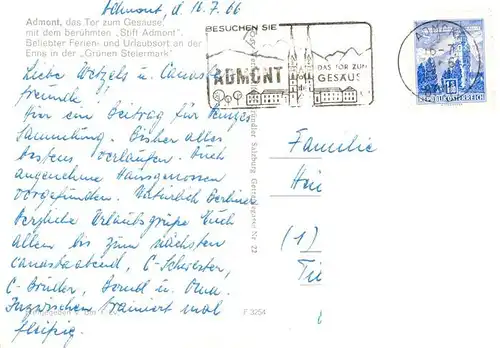 Admont, d. 16.7.66
Admont, das Tor zum Gesäuse,
mit dem berühmten "Stift Admont".
Beliebter Ferien- und Urlaubsort an der
Enns in der „Grünen Steiermark"
BESUCHEN SIE
ADMONT
DAS TOR ZUM
GESÄUSE
ADMONT
REPUBLIK ÖSTERREICH
Liebe Wetzels u. Canasta
freunde!
Hier ein Beitrag für
Sammlung. Bisher alles
bestens verlaufen. Auch
angenehme Hausgenossen
vorgefunden. Natürlich Berliner.
Herzliche Urlaubsgrüße Euch
allen bis zum nächsten
Canastaabend, C-Schwester,
C-Bruder, Bernd u. Oma.
Inzwischen trainiert mal
fleißig.
Familie
(1)
F 3254